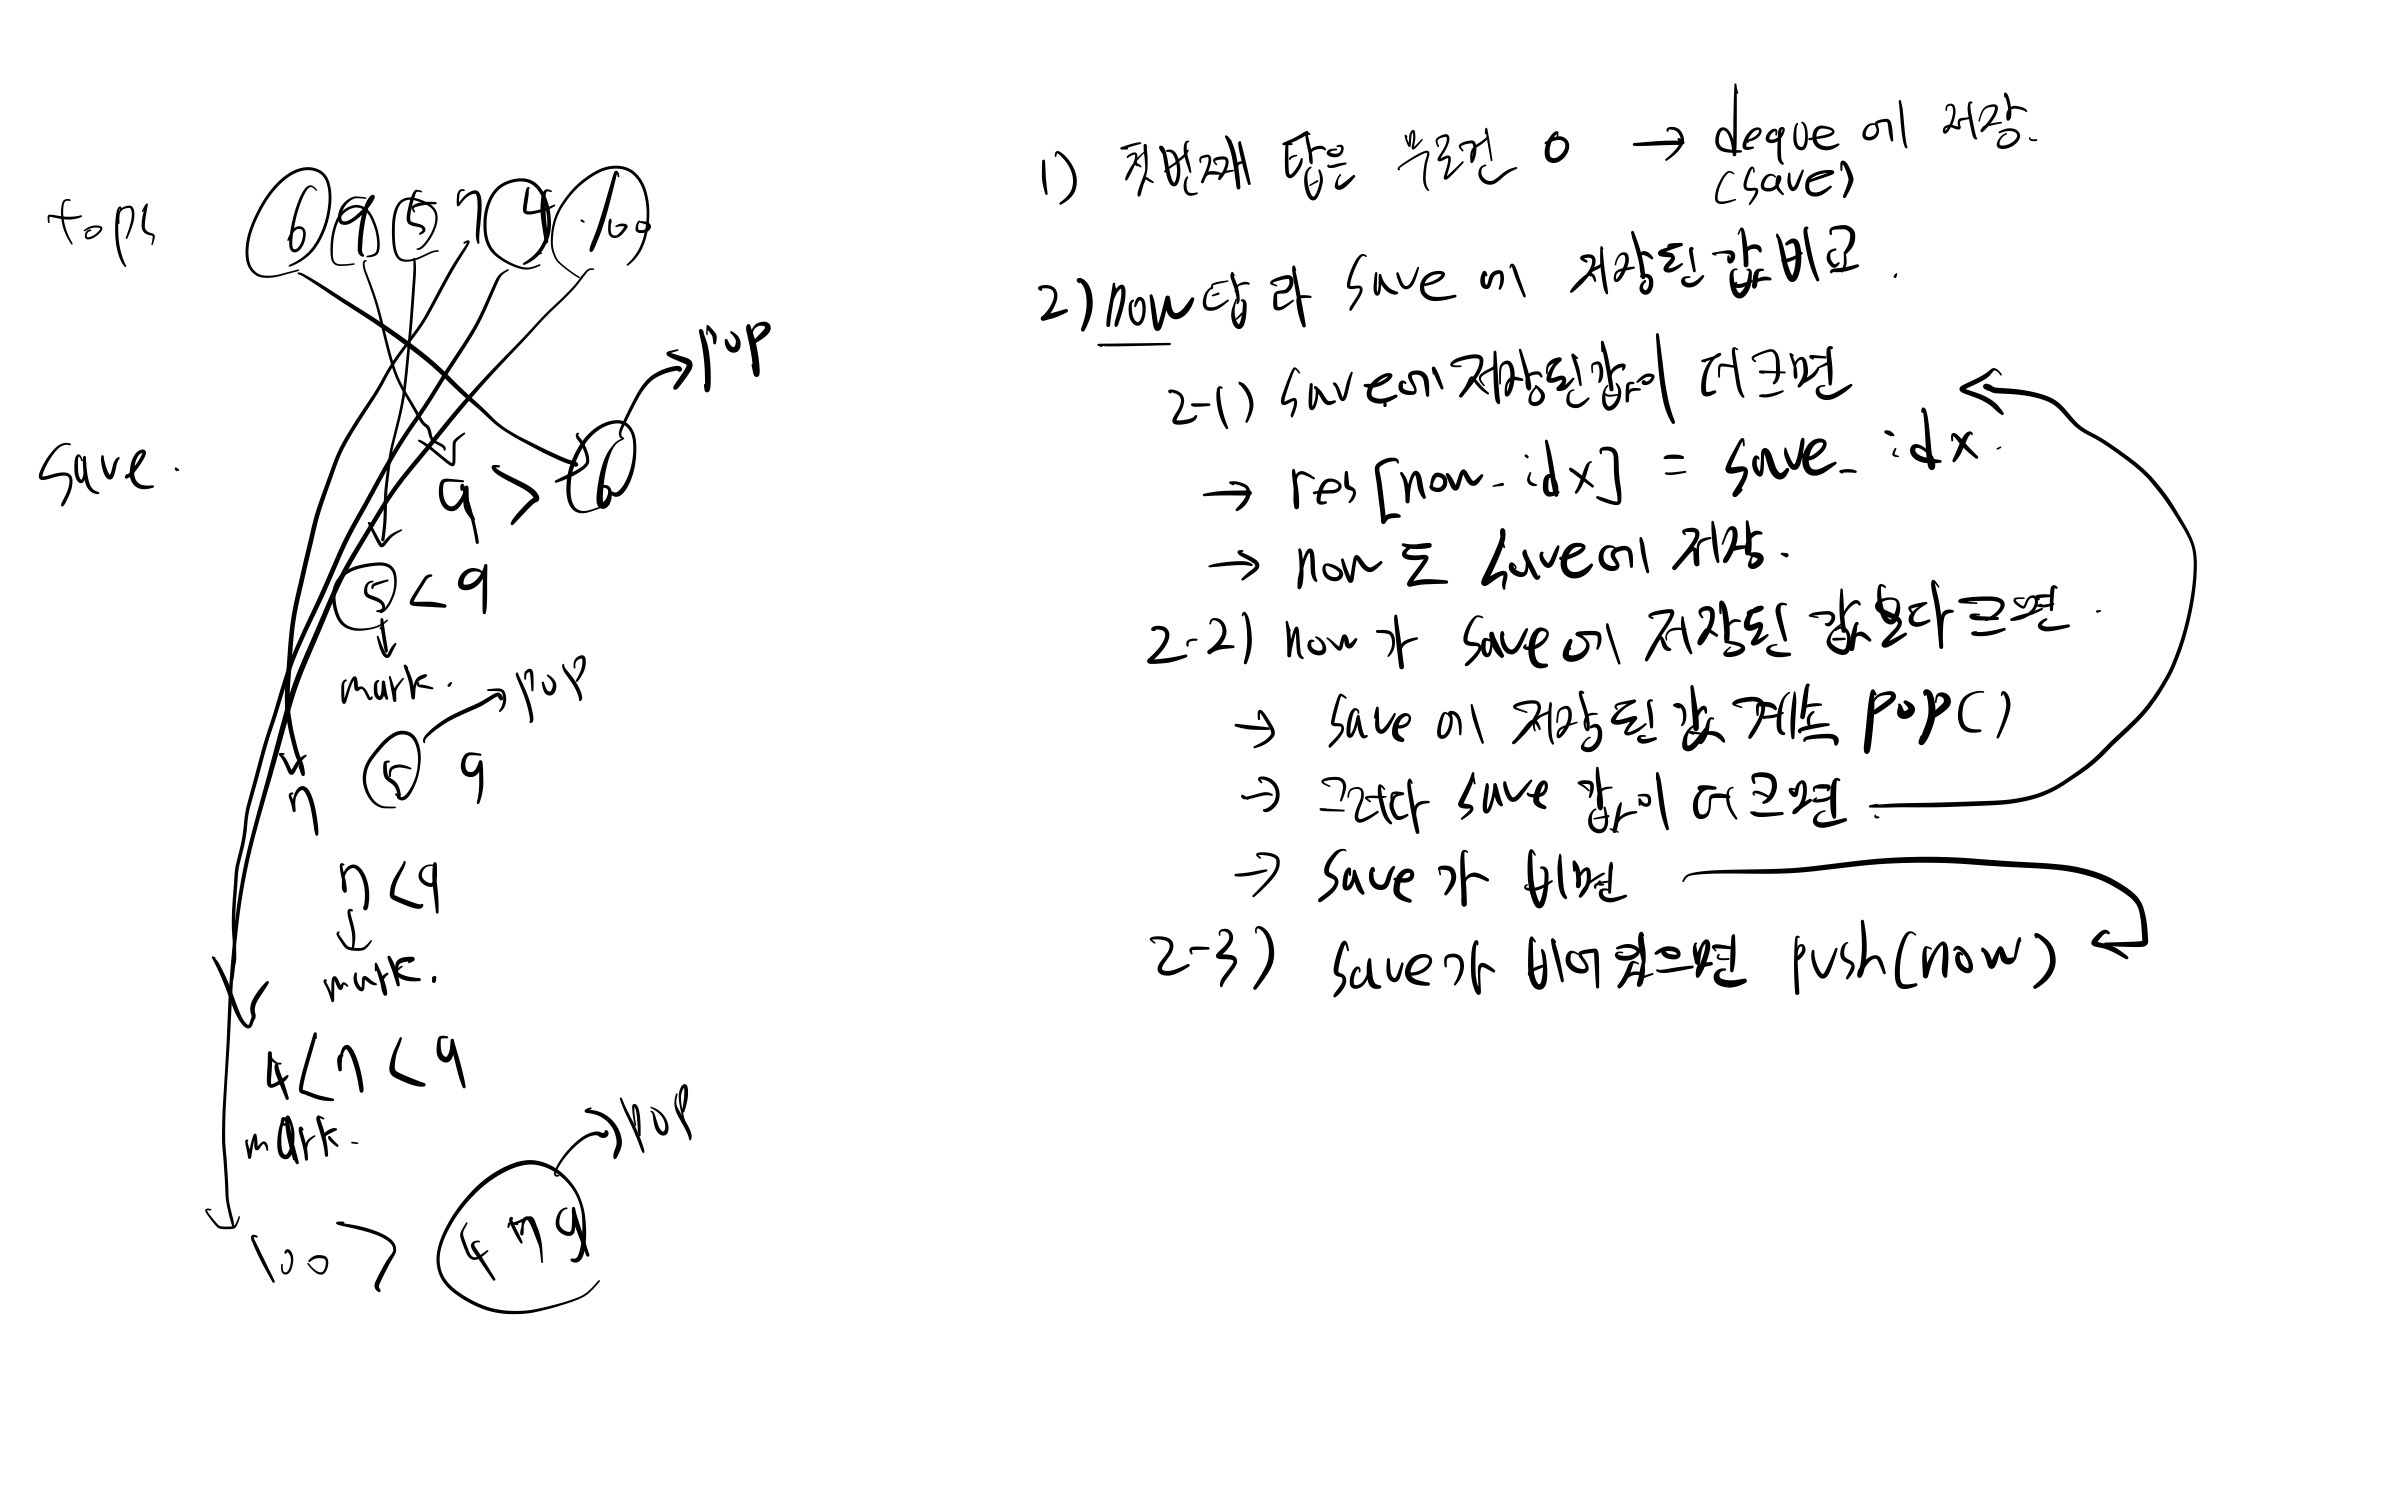 top:
6 9 5 7 4 100
save.
pop
9 > 6
5 < 9
mark.
pop
5 9
7
7 < 9
mark.
4 < 7 < 9
mark.
pop
100 > 4 7 9
1) 첫번째 탑은 무조건 0 → deque에 저장.
(save)
2) now 탑과 save에 저장된 값 비교.
2-1) save에 저장된 값이 더 크면
→ res[now_idx] = save_idx.
→ now도 save에 저장.
2-2) now가 save에 저장된 값보다 크면.
→ save에 저장된 값 계속 pop()
→ 그러다 save 값이 더 크면
→ save가 비면
2-3) save가 비어있으면 push(now)